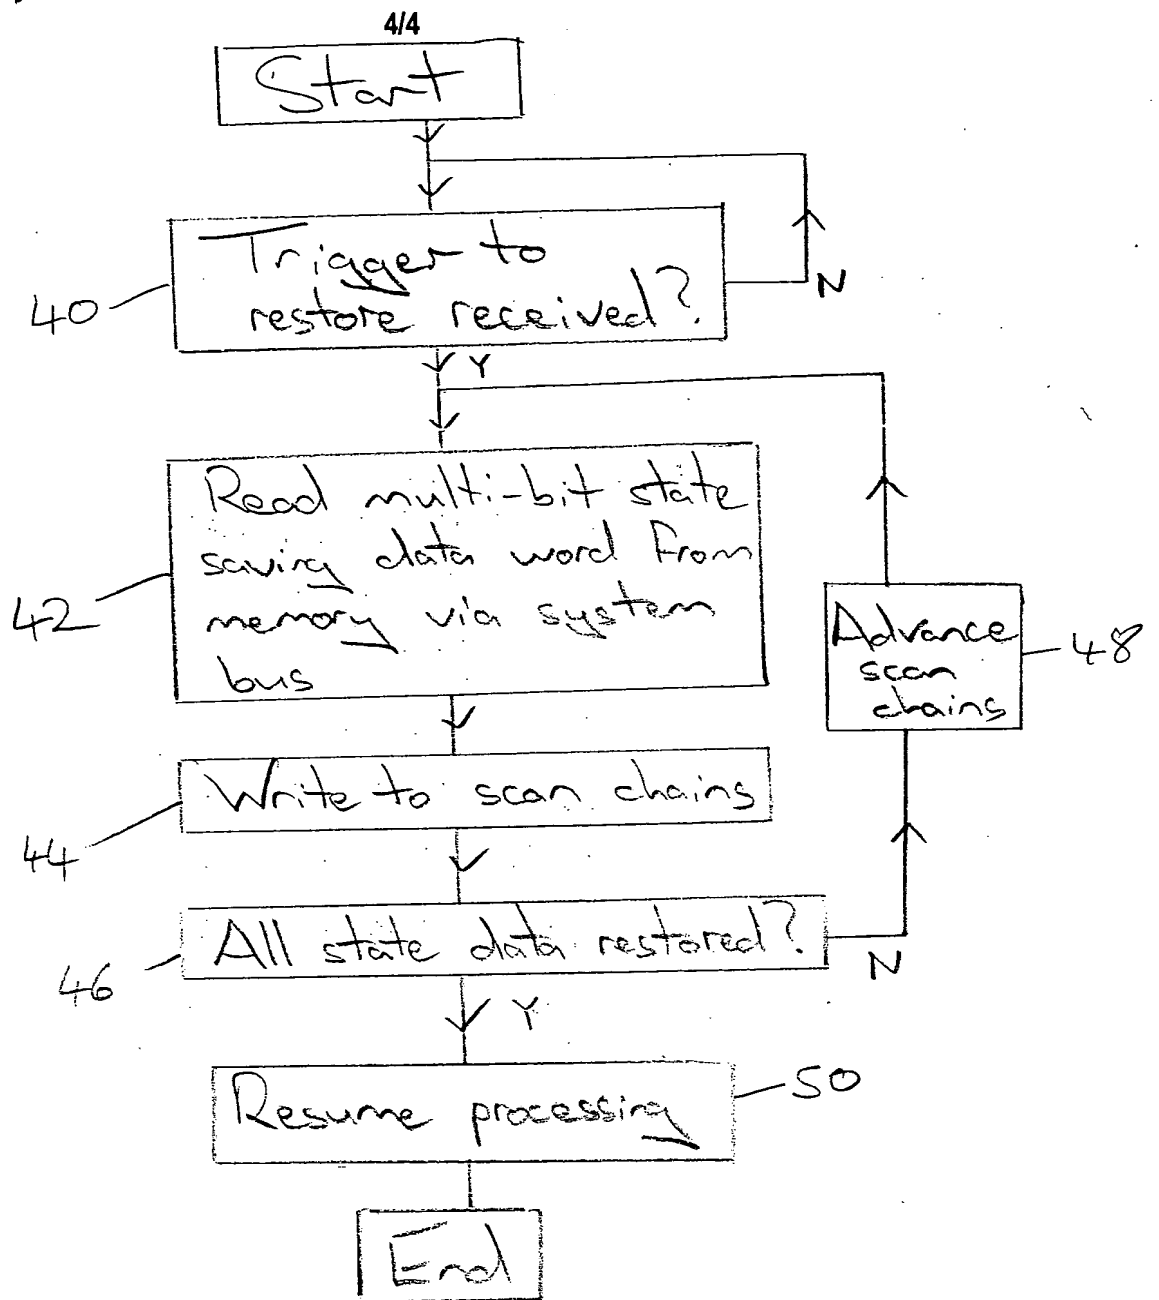 4/4
Start
Trigger to
restore received?
N
40
Y
Read multi-bit state
saving data word from
memory via system
bus
42
Advance
scan
chains
48
Write to scan chains
44
All state data restored?
N
46
Y
Resume processing
50
End